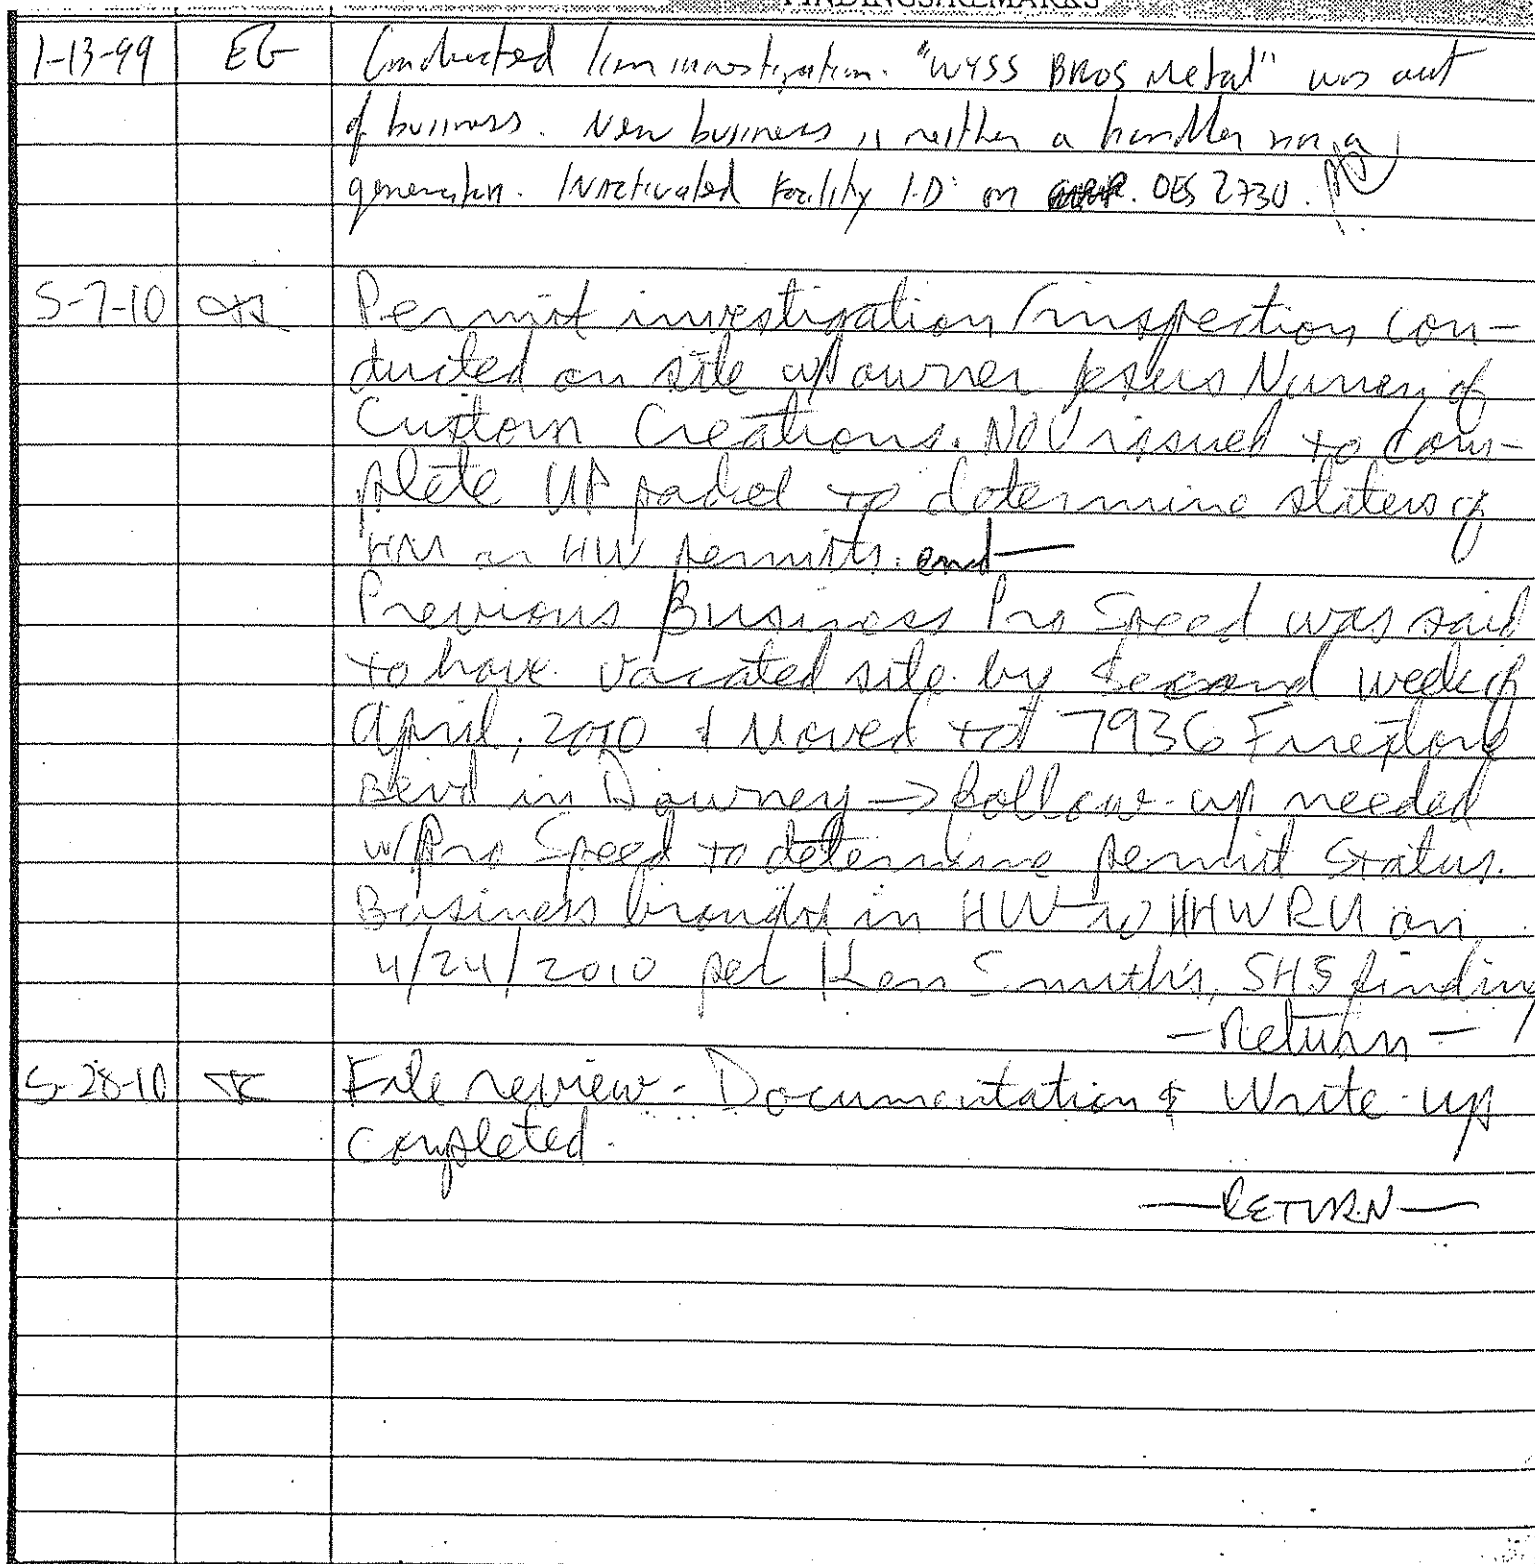 FINDINGS/REMARKS
1-13-99 EG Conducted lien investigation. "WYSS BROS Metal" was out
of business. New business is neither a handler nor a
generator. Inactivated Facility I.D. on OES 2730.
5-7-10 Permit investigation/inspection con-
ducted on site w/ owner Jesus Nunez of
Custom Creations. NOV issued to com-
plete UP packet to determine status of
HM or HW permits. end—
Previous Business Pro Speed was said
to have vacated site by Second week of
April, 2010 & Moved to 7936 Firestone
Blvd in Downey → follow-up needed
w/Pro Speed to determine permit status.
Business brought in HW to HHWRU on
4/24/2010 per Ken Smith's, SHS finding
—Return—
5-28-10 File review - Documentation & Write-up
completed.
—RETURN—